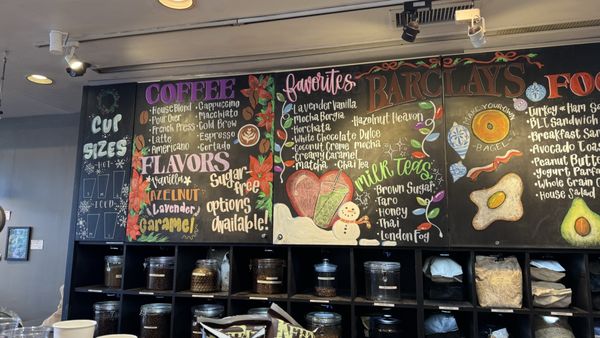 CUP
SIZES
HOT
ICED
COFFEE
House Blend
Pour Over
French Press
Latte
Americano
Cappuccino
Macchiato
Cold Brew
Espresso
Cortado
FLAVORS
Vanilla
HAZELNUT
Lavender
Caramel
Sugar-free
options
available!
favorites
Lavender Vanilla
Mocha Borgia
Horchata
White Chocolate Dulce
Coconut Creme Mocha
Creamy Caramel
Matcha
Chai Tea
Hazelnut Heaven
milk teas
Brown Sugar
Taro
Honey
Thai
London Fog
BARCLAYS
MAKE YOUR OWN
BAGEL
FOO
Turkey
Ham
BLT Sandwich
Breakfast San
Avocado Toas
Peanut Butte
Yogurt Parfa
Whole Grain
House Salad